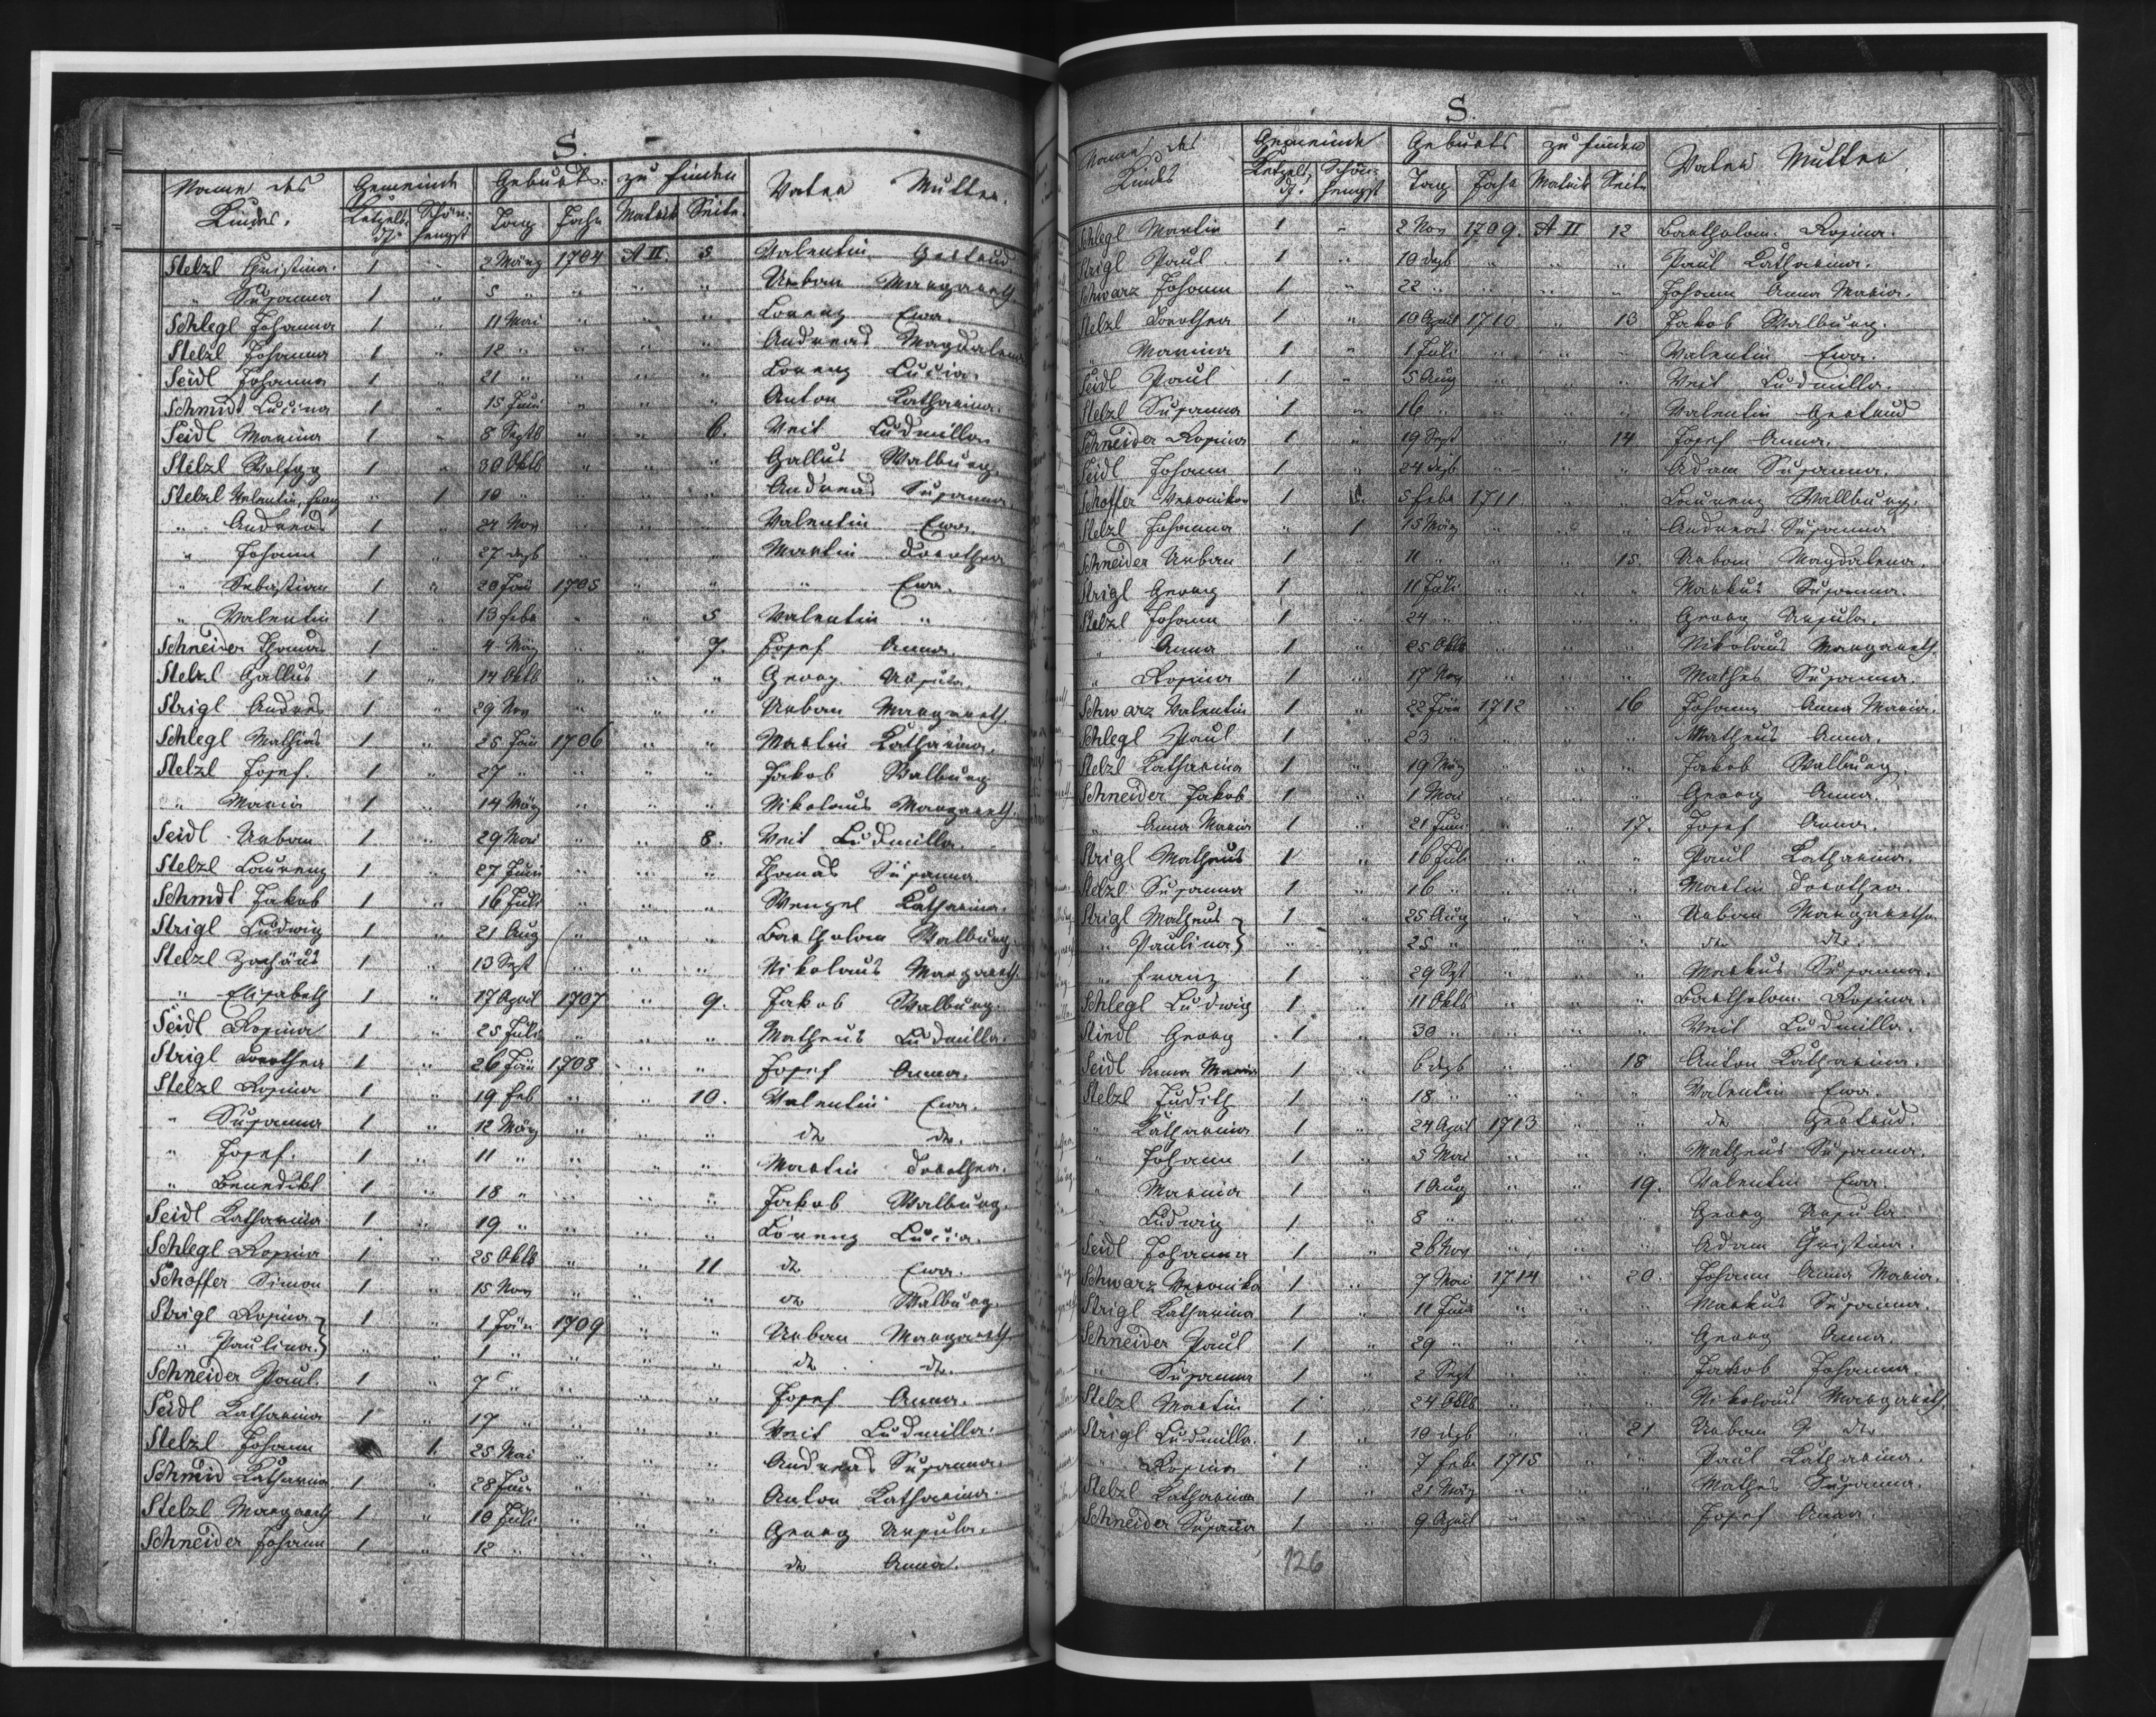 S.
Name des Kindes. Gemeinde Geburts- zu finden Vater Mutter.
Ketzelsd. Schönhengst Tag Jahr Matrik Seite.
Stelzl Christina. 1 " 2 März 1704 A II. 5. Valentin Gertrud
" Susanna 1 " 5 " " " " Urban Margareth.
Schlegl Johanna 1 " 11 Mai " " " Lorenz Ewa.
Stelzl Johanna 1 " 12 " " " " Andreas Magdalena
Seidl Johanna 1 " 21 " " " " Lorenz Lucia.
Schmidt Lucina 1 " 15 Juni " " " Anton Katharina.
Seidl Marina 1 " 8 Septb " " 6. Veit Ludmilla
Stelzl Wolfgg 1 " 30 Oktb " " " Gallus Walburg.
Stelzl Valentin, Franz " 1 10 " " " " Andreas Susanna
" Andreas 1 " 24 Nov " " " Valentin Ewa.
" Johann 1 " 27 dezb " " " Martin Dorothea
" Sebastian 1 " 20 Jän 1705 " " " Ewa.
" Valentin 1 " 13 febr " " 5 Valentin "
Schneider Thomas 1 " 4 März " " 7. Josef Anna.
Stelzl Gallus 1 " 14 Oktb " " " Georg Ursula.
Strigl Andreas 1 " 29 Nov " " " Urban Margareth
Schlegl Mathias 1 " 25 Jän 1706 " " Martin Katharina.
Stelzl Josef. 1 " 27 " " " " Jakob Walburg
" Maria 1 " 14 März " " " Nikolaus Margareth.
Seidl Urban 1 " 29 Mai " " 8. Veit Ludmilla.
Stelzl Laurenz 1 " 27 Juni " " " Thomas Susanna.
Schmdt Jakob 1 " 16 Juli " " " Wenzel Katharina.
Strigl Ludwig 1 " 21 Aug " " " Bartholom Walburg.
Stelzl Zachäus 1 " 13 Sept " " " Nikolaus Margareth.
" Elisabeth 1 " 17 April 1707 " 9. Jakob Walburg.
Seidl Rosina 1 " 25 Juli " " " Matheus Ludmilla.
Strigl Dorothea 1 " 26 Jän 1708 " " Josef Anna.
Stelzl Rosina 1 " 19 feb " " 10. Valentin Ewa.
" Susanna 1 " 12 März " " " do do.
" Josef. 1 " 11 " " " " Martin Dorothea.
" Benedikt 1 " 18 " " " " Jakob Walburg.
Seidl Katharina 1 " 19 " " " " Lorenz Lucia.
Schlegl Rosina 1 " 25 Oktb " " 11 do Ewa.
Schoffer Simon 1 " 15 Nov " " " do Walburg.
Strigl Rosina } 1 " 1 Jän 1709 " " Urban Margareth
" Paulina. } " " 1 " " " " do do.
Schneider Paul. 1 " 7 " " " " Josef Anna.
Seidl Katharina 1 " 17 " " " " Veit Ludmilla.
Stelzl Johann 1. 25 Mai " " " Andreas Susanna.
Schmid Katharina 1 " 28 Juni " " " Anton Katharina.
Stelzl Margareth 1 " 10 Juli " " " Georg Ursula.
Schneider Johann 1 " 12 " " " " do Anna.
S.
Name des Kindes Gemeinde Geburts zu finden Vater Mutter
Ketzelsd. Schönhengst Tag Jahr Matrik Seite
Schlegl Martin 1 " 2 Nov 1709. A II 12 Bartholom. Rosina.
Strigl Paul 1 " 10 dezb " " " Paul Katharina.
Schwarz Johann 1 " 22 " " " " Johann Anna Maria.
Stelzl Dorothea 1 " 10 April 1710 " 13 Jakob Walburg.
" Marina 1 " 1 Juli " " " Valentin Ewa.
Seidl Paul 1 " 5 Aug " " " Veit Ludmilla.
Stelzl Susanna 1 " 16 " " " " Valentin Gertrud
Schneider Rosina 1 " 19 Sept " " 14 Josef Anna.
Seidl Johann 1 " 24 dezb " " " Adam Susanna.
Schoffer Veronika 1 5 febr 1711 " " Laurenz Wallburg.
Stelzl Johanna " 1 15 März " " " Andreas Susanna
Schneider Urban 1 " 11 " " " 15. Urban Magdalena.
Strigl Georg 1 " 11 Juli " " " Markus Susanna.
Stelzl Johann 1 " 24 " " " " Georg Ursula.
" Anna 1 " 25 Oktb " " " Nikolaus Margareth.
" Rosina 1 " 17 Nov " " " Mathes Susanna.
Schwarz Valentin 1 " 22 Jän 1712 " 16 Johann Anna Maria.
Schlegl Paul 1 " 23 " " " " Matheus Anna.
Stelzl Katharina 1 " 19 März " " " Jakob Walburg.
Schneider Jakob 1 " 1 Mai " " " Georg Anna.
" Anna Maria 1 " 21 Juni " " 17. Josef Anna.
Strigl Matheus 1 " 16 Juli " " " Paul Katharina.
Stelzl Susanna 1 " 16 " " " " Martin Dorothea.
Strigl Matheus } 1 " 25 Aug " " " Urban Margaretha
" Paulina } " " 25 " " " " do do.
" Franz 1 " 29 Spt " " " Markus Susanna.
Schlegl Ludwig 1 " 11 Oktb " " " Bartholom Rosina.
Riedl Georg 1 " 30 " " " " Veit Ludmilla.
Seidl Anna Maria 1 " 6 dezb " " 18 Anton Katharina.
Stelzl Judith 1 " 18 " " " " Valentin Ewa.
" Katharina 1 " 24 April 1713 " " do Gertrud.
" Johann 1 " 5 Mai " " " Matheus Susanna.
" Marina 1 " 1 Aug " " 19. Valentin Ewa.
" Ludwig 1 " 8 " " " " Georg Ursula
Seidl Johanna 1 " 26 Nov " " " Adam Christina.
Schwarz Veronika 1 " 7 Mai 1714 " 20. Johann Anna Maria.
Strigl Katharina 1 " 11 Juni " " " Markus Susanna.
Schneider Paul 1 " 29 " " " " Georg Anna.
" Susanna 1 " 2 Sept " " " Jakob Johanna.
Stelzl Martin 1 " 24 Oktb " " " Nikolaus Margareth.
Strigl Ludmilla. 1 " 10 dezb " " 21 Urban ? do
" Rosina 1 " 7 febr 1715 " " Paul Katharina.
Stelzl Katharina 1 " 21 März " " " Mathes Susanna.
Schneider Susanna 1 " 9 April " " " Josef Anna.
126